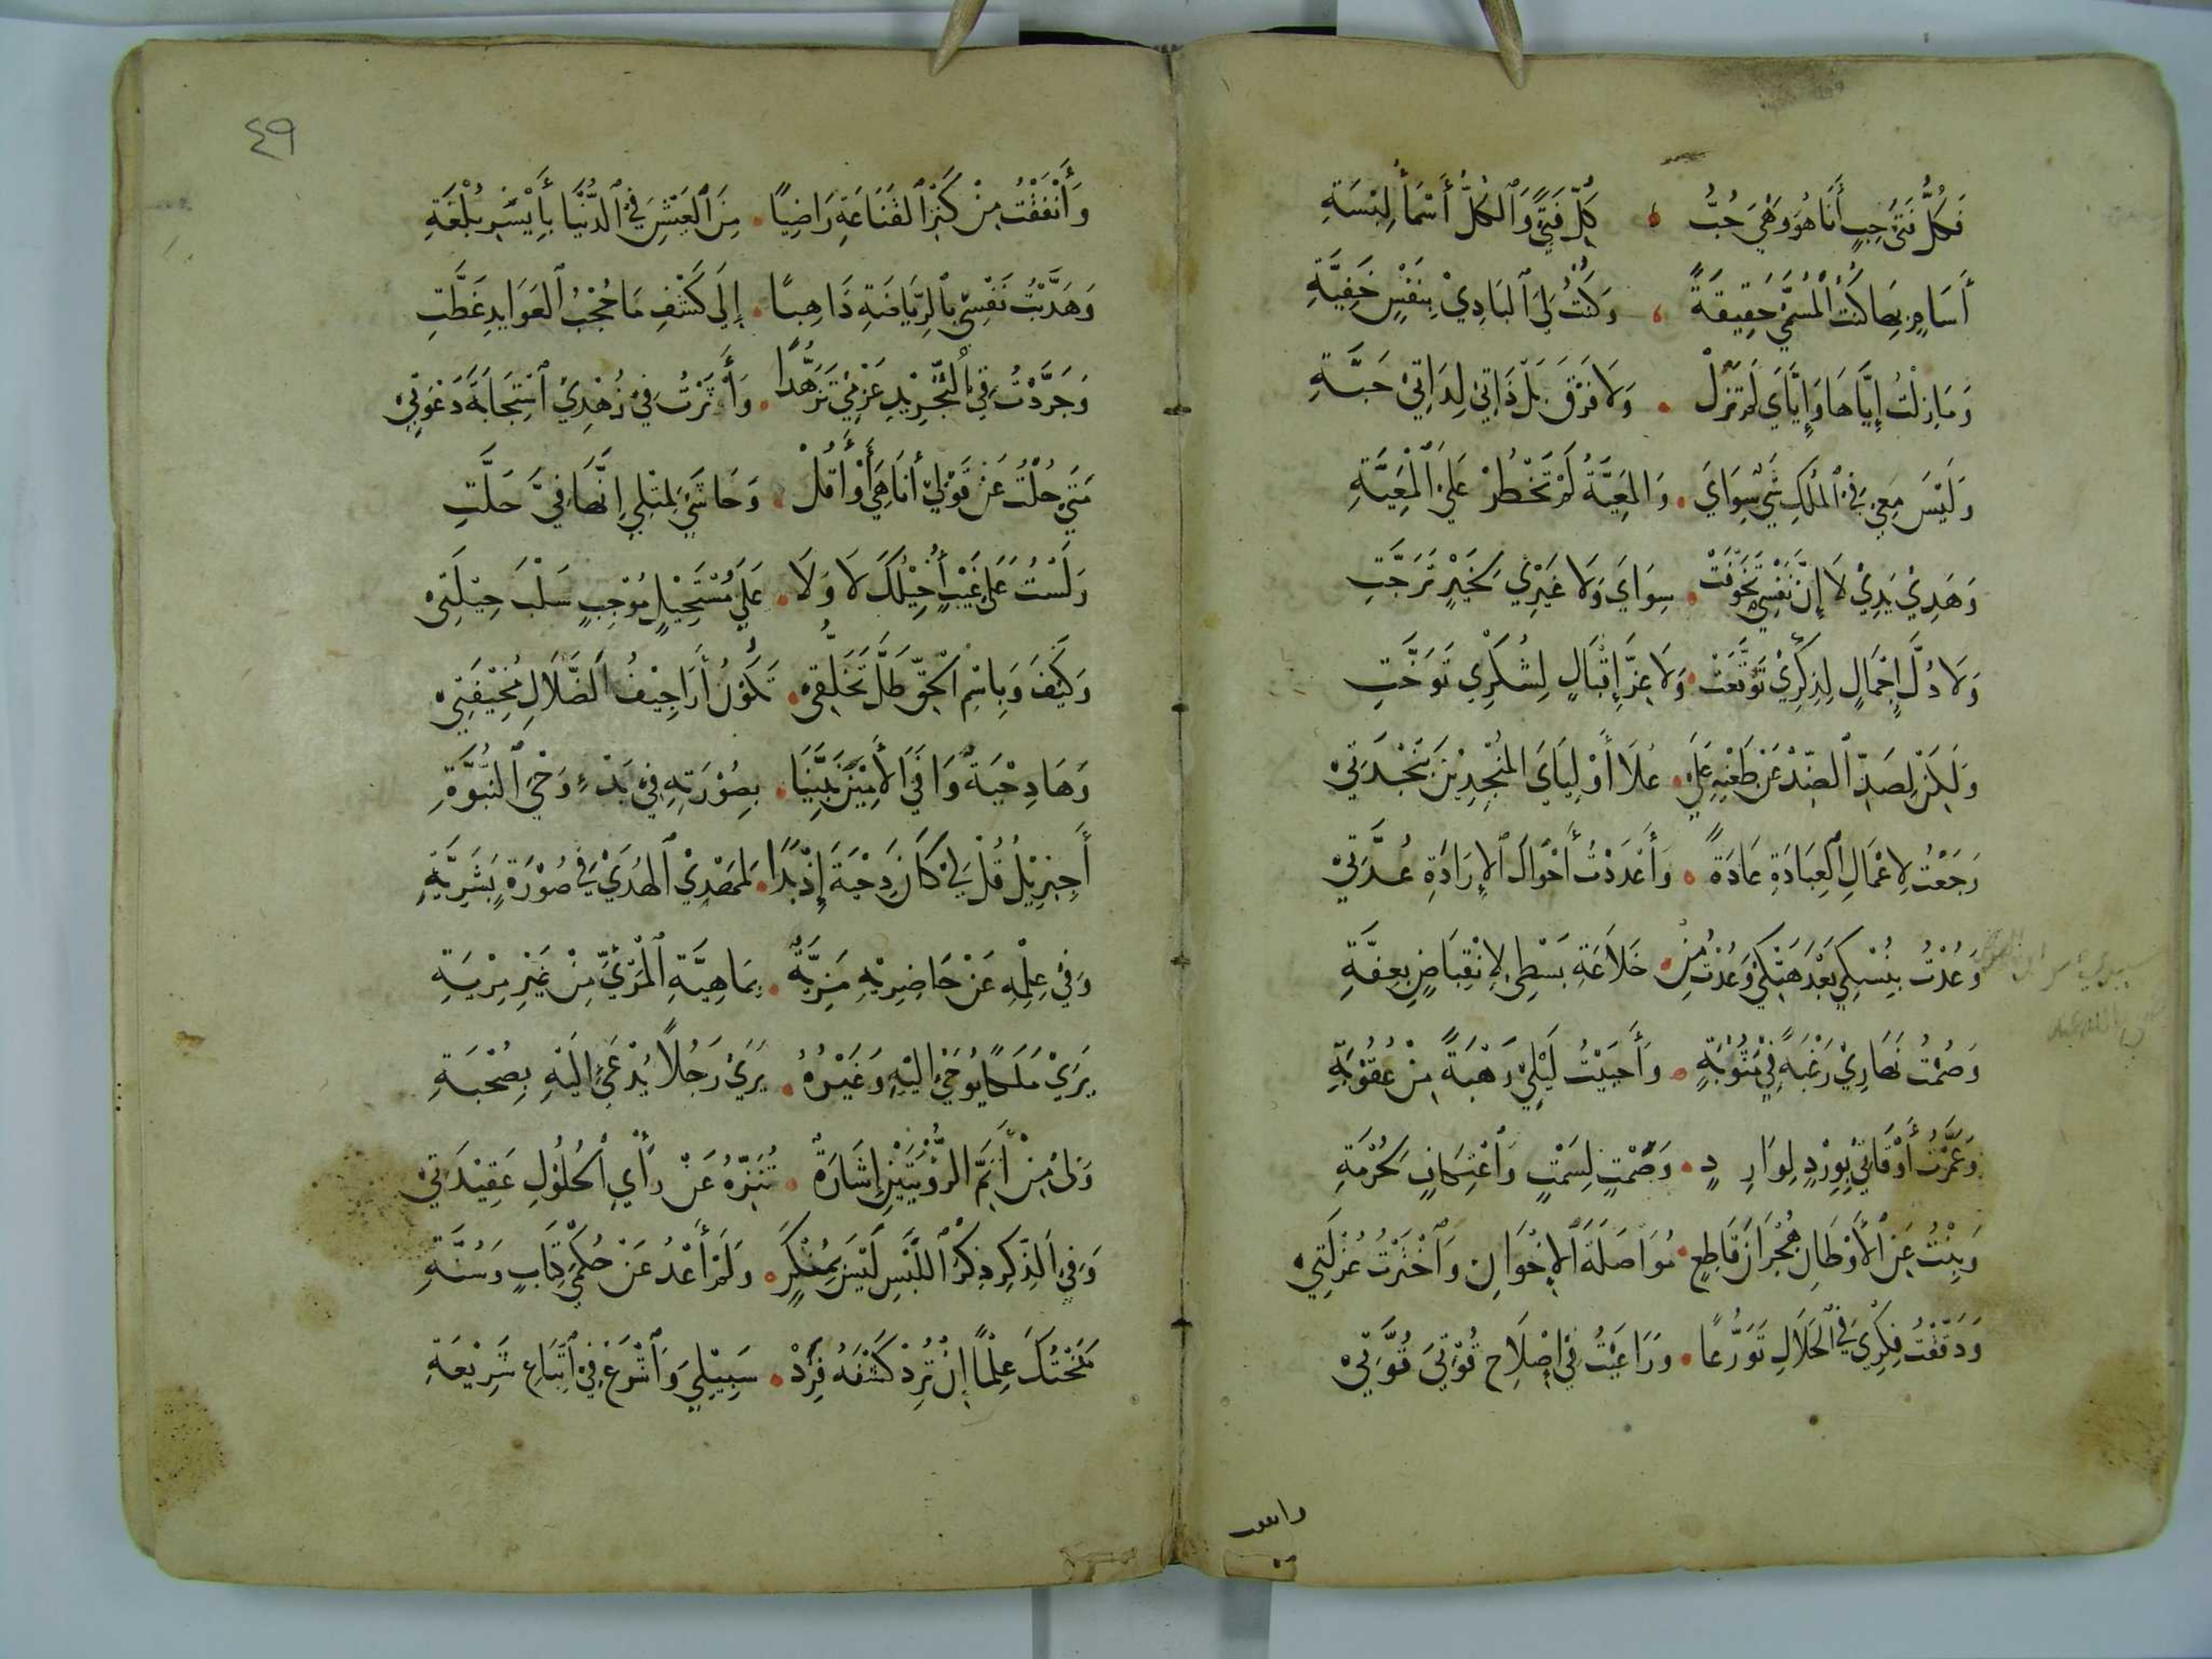 فَكُلُّ فَتَى حِبٍّ أَنَا هُوَ وَهْيَ حِبُّ كُلِّ فَتًى وَالْكُلُّ أَسْمَاءُ لُبْسَةِ
أَسَامٍ بِهَا كُنْتُ الْمُسَمَّى حَقِيقَةً وَكُنْتُ لِيَ الْبَادِيْ بِنَفْسٍ خَفِيَّةِ
وَمَا زِلْتُ إِيَّاهَا وَإِيَّايَ لَمْ تَزَلْ وَلَا فَرْقَ بَلْ ذَاتِيْ لِذَاتِيْ حَبَّتِ
وَلَيْسَ مَعِيْ فِي الْمُلْكِ شَيْءٌ سِوَايَ وَالْمَعِيَّةُ لَمْ تَخْطُرْ عَلَى الْمَعِيَّةِ
وَهَذِيْ يَدِيْ لَا إِنَّ نَفْسِيْ تَخَوَّفَتْ سِوَايَ وَلَا غَيْرِيْ لِخَيْرٍ تَرَجَّتِ
وَلَا ذُلَّ إِجْمَالٍ لِذِكْرِيْ تَوَقَّعَتْ وَلَا عِزَّ إِقْبَالٍ لِشُكْرِي تَوَخَّتِ
وَلَكِنْ لِصَدِّ الضِّدِّ عَنْ طَعْنِهِ عَلَى عُلَا أَوْلِيَاءِ الْمُنْجِدِيْنَ بِنَجْدَتِيْ
رَجَعْتُ لِأَعْمَالِ الْعِبَادَةِ عَادَةً وَأَعْدَدْتُ أَحْوَالَ الْإِرَادَةِ عُدَّتِيْ
وَعُدْتُ بِنُسْكِي بَعْدَ هَتْكِي وَعُدْتُ مِنْ خَلَاعَةِ بَسْطِي لِانْقِبَاضٍ بِعِفَّةِ
وَصُمْتُ نَهَارِيْ رَغْبَةً فِيْ مَثُوْبَةٍ وَأَحْيَيْتُ لَيْلِيْ رَهْبَةً مِنْ عُقُوْبَةِ
وَعَمَّرْتُ أَوْقَاتِيْ بِوِرْدٍ لِوَارِدٍ وَصَمْتٍ لِسَمْتٍ وَاعْتِكَافٍ لِحُرْمَةِ
وَبِنْتُ عَنِ الْأَوْطَانِ هُجْرَانَ قَاطِعٍ مُوَاصَلَةَ الْإِخْوَانِ وَاخْتَرْتُ عُزْلَتِيْ
وَدَقَّقْتُ فِكْرِيْ فِي الْحَلَالِ تَوَرُّعًا وَرَاعَيْتُ فِيْ إِصْلَاحِ قُوْتِيَ قُوَّتِيْ
٤٩
وَأَنْفَقْتُ مِنْ كَنْزِ الْقَنَاعَةِ رَاضِيًا مِنَ الْعَيْشِ فِي الدُّنْيَا بِأَيْسَرِ بُلْغَةِ
وَهَذَّبْتُ نَفْسِيْ بِالرِّيَاضَةِ ذَاهِبًا إِلَى كَشْفِ مَا حُجْبُ الْعَوَايِدِ غَطَّتِ
وَجَرَّدْتُ فِي التَّجْرِيْدِ عَزْمِيْ تَزَهُّدًا وَأَثَرْتُ فِيْ زُهْدِيْ اسْتِجَابَةَ دَعْوَتِيْ
مَتَى حُلْتُ عَنْ قَوْلِيْ أَنَا هِيَ أَوْ أَقُلْ وَحَاشَى لِمِثْلِي إِنَّهَا فِيَّ حَلَّتِ
وَلَسْتُ عَلَى غَيْبٍ أُحِيْلُكَ لَا وَلَا عَلَى مُسْتَحِيْلٍ مُوْجِبٍ سَلْبَ حِيْلَتِيْ
وَكَيْفَ وَبِاسْمِ الْحَقِّ ظَلَّ تَخَلُّقِيْ تَكُوْنُ أَرَاجِيْفُ الضَّلَالِ مُخِيْفَتِيْ
وَهَا دِحْيَةٌ وَافَى الْأَمِيْنُ نَبِيَّنَا بِصُوْرَتِهِ فِيْ بَدْءِ وَحْيِ النُّبُوَّةِ
أَجِبْرِيْلُ قُلْ لِيْ كَانَ دِحْيَةَ إِذْ بَدَا لِمُهْدِيْ الْهُدَى فِي صُوْرَةٍ بَشَرِيَّةِ
وَفِيْ عِلْمِهِ عَنْ حَاضِرِيْهِ مَزِيَّةٌ بِمَاهِيَّةِ الْمَرْئِيِّ مِنْ غَيْرِ مِرْيَةِ
يَرَى مَلَكًا يُوْحَى إِلَيْهِ وَغَيْرُهُ يَرَى رَجُلًا يُدْعَى إِلَيْهِ بِصُحْبَةِ
وَلِيْ مِنْ أَتَمِّ الرُّؤْيَتَيْنِ إِشَارَةٌ تُنَزِّهُ عَنْ رَأْيِ الْحُلُوْلِ عَقِيْدَتِيْ
وَفِي الذِّكْرِ ذِكْرُ اللَّبْسِ لَيْسَ بِمُنْكَرٍ وَلَمْ أَعْدُ عَنْ حُكْمَيْ كِتَابٍ وَسُنَّةِ
مَنَحْتُكَ عِلْمًا إِنْ تُرِدْ كَشْفَهُ فَرِدْ سَبِيْلِي وَاشْرَعْ فِيْ اتِّبَاعِ شَرِيْعَةِ